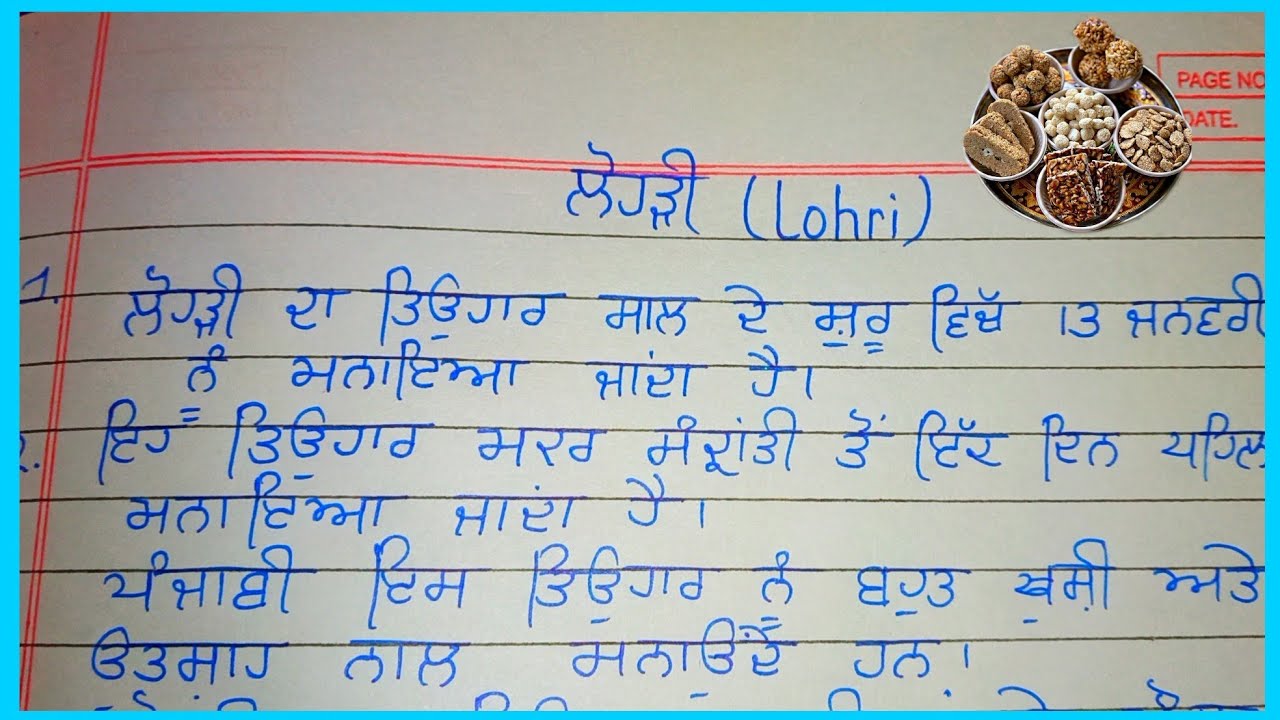 PAGE NO
DATE.
ਲੋਹੜੀ (Lohri)
1. ਲੋਹੜੀ ਦਾ ਤਿਉਹਾਰ ਸਾਲ ਦੇ ਸ਼ੁਰੂ ਵਿੱਚ 13 ਜਨਵਰੀ
ਨੂੰ ਮਨਾਇਆ ਜਾਂਦਾ ਹੈ।
2. ਇਹ ਤਿਉਹਾਰ ਮਕਰ ਸੰਕ੍ਰਾਂਤੀ ਤੋਂ ਇੱਕ ਦਿਨ ਪਹਿਲ
ਮਨਾਇਆ ਜਾਂਦਾ ਹੈ।
ਪੰਜਾਬੀ ਇਸ ਤਿਉਹਾਰ ਨੂੰ ਬਹੁਤ ਖੁਸ਼ੀ ਅਤੇ
ਉਤਸ਼ਾਹ ਨਾਲ ਮਨਾਉਂਦੇ ਹਨ।